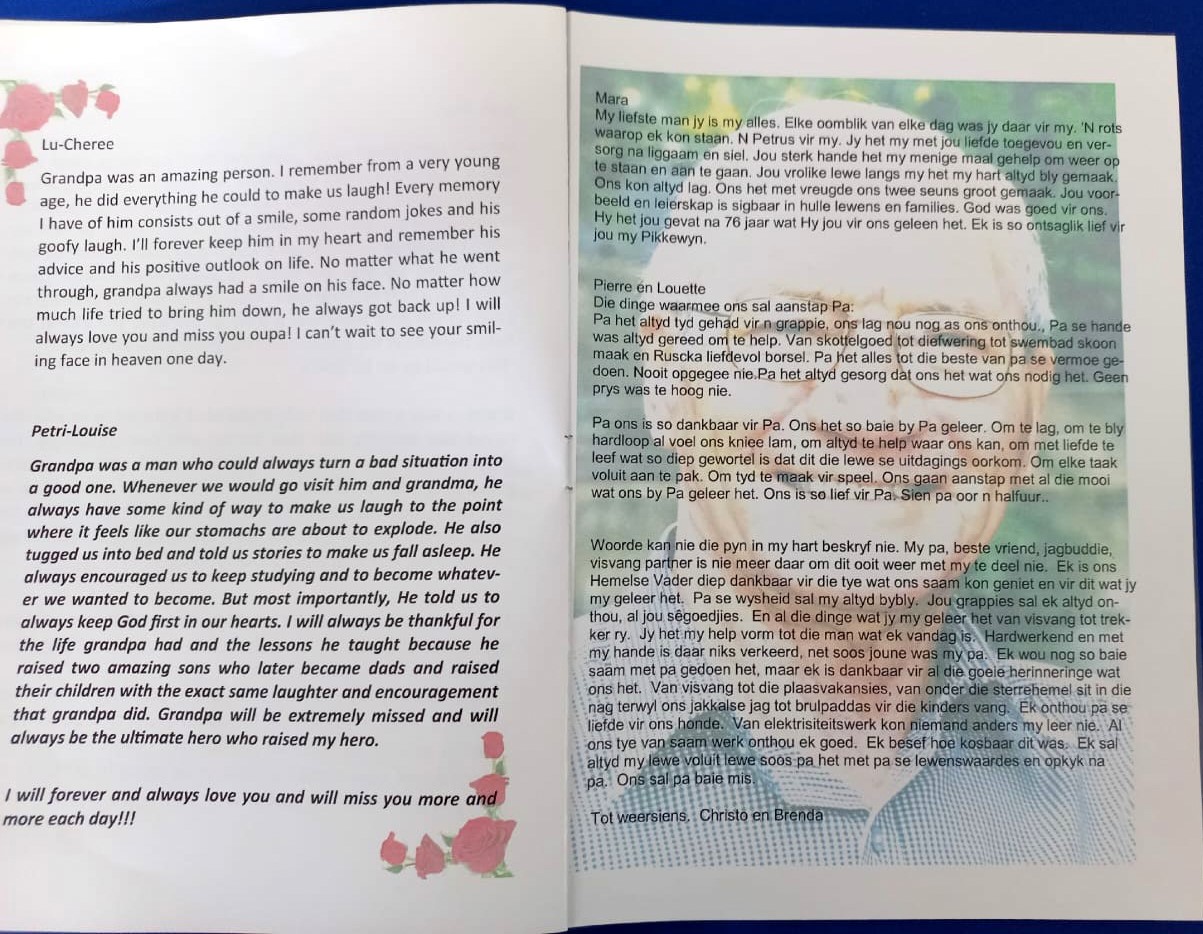 Lu-Cheree
Grandpa was an amazing person. I remember from a very young
age, he did everything he could to make us laugh! Every memory
I have of him consists out of a smile, some random jokes and his
goofy laugh. I'll forever keep him in my heart and remember his
advice and his positive outlook on life. No matter what he went
through, grandpa always had a smile on his face. No matter how
much life tried to bring him down, he always got back up! I will
always love you and miss you oupa! I can't wait to see your smil-
ing face in heaven one day.
Petri-Louise
Grandpa was a man who could always turn a bad situation into
a good one. Whenever we would go visit him and grandma, he
always have some kind of way to make us laugh to the point
where it feels like our stomachs are about to explode. He also
tugged us into bed and told us stories to make us fall asleep. He
always encouraged us to keep studying and to become whatev-
er we wanted to become. But most importantly, He told us to
always keep God first in our hearts. I will always be thankful for
the life grandpa had and the lessons he taught because he
raised two amazing sons who later became dads and raised
their children with the exact same laughter and encouragement
that grandpa did. Grandpa will be extremely missed and will
always be the ultimate hero who raised my hero.
I will forever and always love you and will miss you more and
more each day!!!
Mara
My liefste man jy is my alles. Elke oomblik van elke dag was jy daar vir my. 'N rots
waarop ek kon staan. N Petrus vir my. Jy het my met jou liefde toegevou en ver-
sorg na liggaam en siel. Jou sterk hande het my menige maal gehelp om weer op
te staan en aan te gaan. Jou vrolike lewe langs my het my hart altyd bly gemaak.
Ons kon altyd lag. Ons het met vreugde ons twee seuns groot gemaak. Jou voor-
beeld en leierskap is sigbaar in hulle lewens en families. God was goed vir ons.
Hy het jou gevat na 76 jaar wat Hy jou vir ons geleen het. Ek is so ontsaglik lief vir
jou my Pikkewyn.
Pierre en Louette
Die dinge waarmee ons sal aanstap Pa:
Pa het altyd tyd gehad vir n grappie, ons lag nou nog as ons onthou., Pa se hande
was altyd gereed om te help. Van skottelgoed tot diefwering tot swembad skoon
maak en Ruscka liefdevol borsel. Pa het alles tot die beste van pa se vermoe ge-
doen. Nooit opgegee nie.Pa het altyd gesorg dat ons het wat ons nodig het. Geen
prys was te hoog nie.
Pa ons is so dankbaar vir Pa. Ons het so baie by Pa geleer. Om te lag, om te bly
hardloop al voel ons kniee lam, om altyd te help waar ons kan, om met liefde te
leef wat so diep gewortel is dat dit die lewe se uitdagings oorkom. Om elke taak
voluit aan te pak. Om tyd te maak vir speel. Ons gaan aanstap met al die mooi
wat ons by Pa geleer het. Ons is so lief vir Pa. Sien pa oor n halfuur..
Woorde kan nie die pyn in my hart beskryf nie. My pa, beste vriend, jagbuddie,
visvang partner is nie meer daar om dit ooit weer met my te deel nie. Ek is ons
Hemelse Vader diep dankbaar vir die tye wat ons saam kon geniet en vir dit wat jy
my geleer het. Pa se wysheid sal my altyd bybly. Jou grappies sal ek altyd on-
thou, al jou sêgoedjies. En al die dinge wat jy my geleer het van visvang tot trek-
ker ry. Jy het my help vorm tot die man wat ek vandag is. Hardwerkend en met
my hande is daar niks verkeerd, net soos joune was my pa. Ek wou nog so baie
saam met pa gedoen het, maar ek is dankbaar vir al die goeie herinneringe wat
ons het. Van visvang tot die plaasvakansies, van onder die sterrehemel sit in die
nag terwyl ons jakkalse jag tot brulpaddas vir die kinders vang. Ek onthou pa se
liefde vir ons honde. Van elektrisiteitswerk kon niemand anders my leer nie. Al
ons tye van saam werk onthou ek goed. Ek besef hoe kosbaar dit was. Ek sal
altyd my lewe voluit lewe soos pa het met pa se lewenswaardes en opkyk na
pa. Ons sal pa baie mis.
Tot weersiens. Christo en Brenda